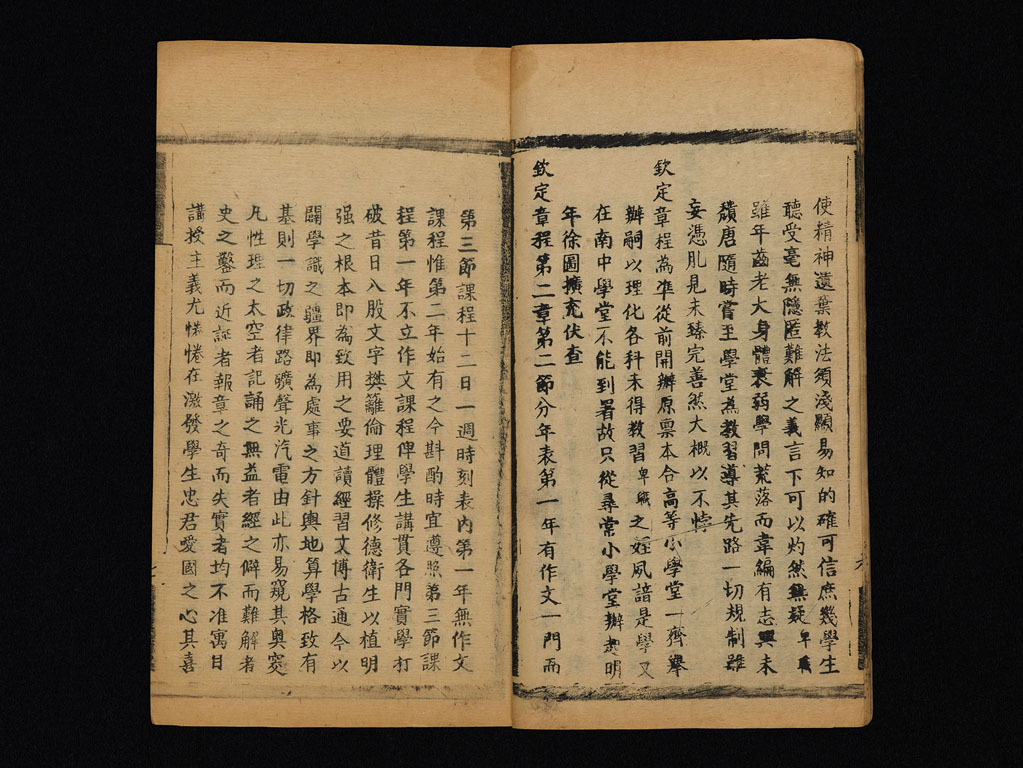 使精神遺棄教法須淺顯易知的確可信庶幾學生
聽受毫無隱匿難解之義言下可以灼然無疑卑職
雖年齒老大身體衰弱學問荒落而韋編有志興未
頽唐隨時嘗至學堂為教習導其先路一切規制雖
妄憑肊見未臻完善然大概以不悖
欽定章程為准從前開辦原票本合高等小學堂一齊舉
辦嗣以理化各科未得教習卑職之姪夙諳是學又
在南中學堂不能到署故只從尋常小學堂辦起明
年徐圖擴充伏查
欽定章程第二章第二節分年表第一年有作文一門而
第三節課程十二日一週時刻表內第一年無作文
課程惟第二年始有之今斟酌時宜遵照第三節課
程第一年不立作文課程俾學生講貫各門實學打
破昔日八股文字樊籬倫理體操修德衛生以植明
强之根本即為致用之要道讀經習文博古通今以
闢學識之疆界即為處事之方針輿地算學格致有
基則一切政律路礦聲光汽電由此亦易窺其奧窔
凡性理之太空者記誦之無益者經之僻而難解者
史之鑿而近誕者報章之奇而失實者均不准寓目
講授主義尤惓惓在激發學生忠君愛國之心其喜